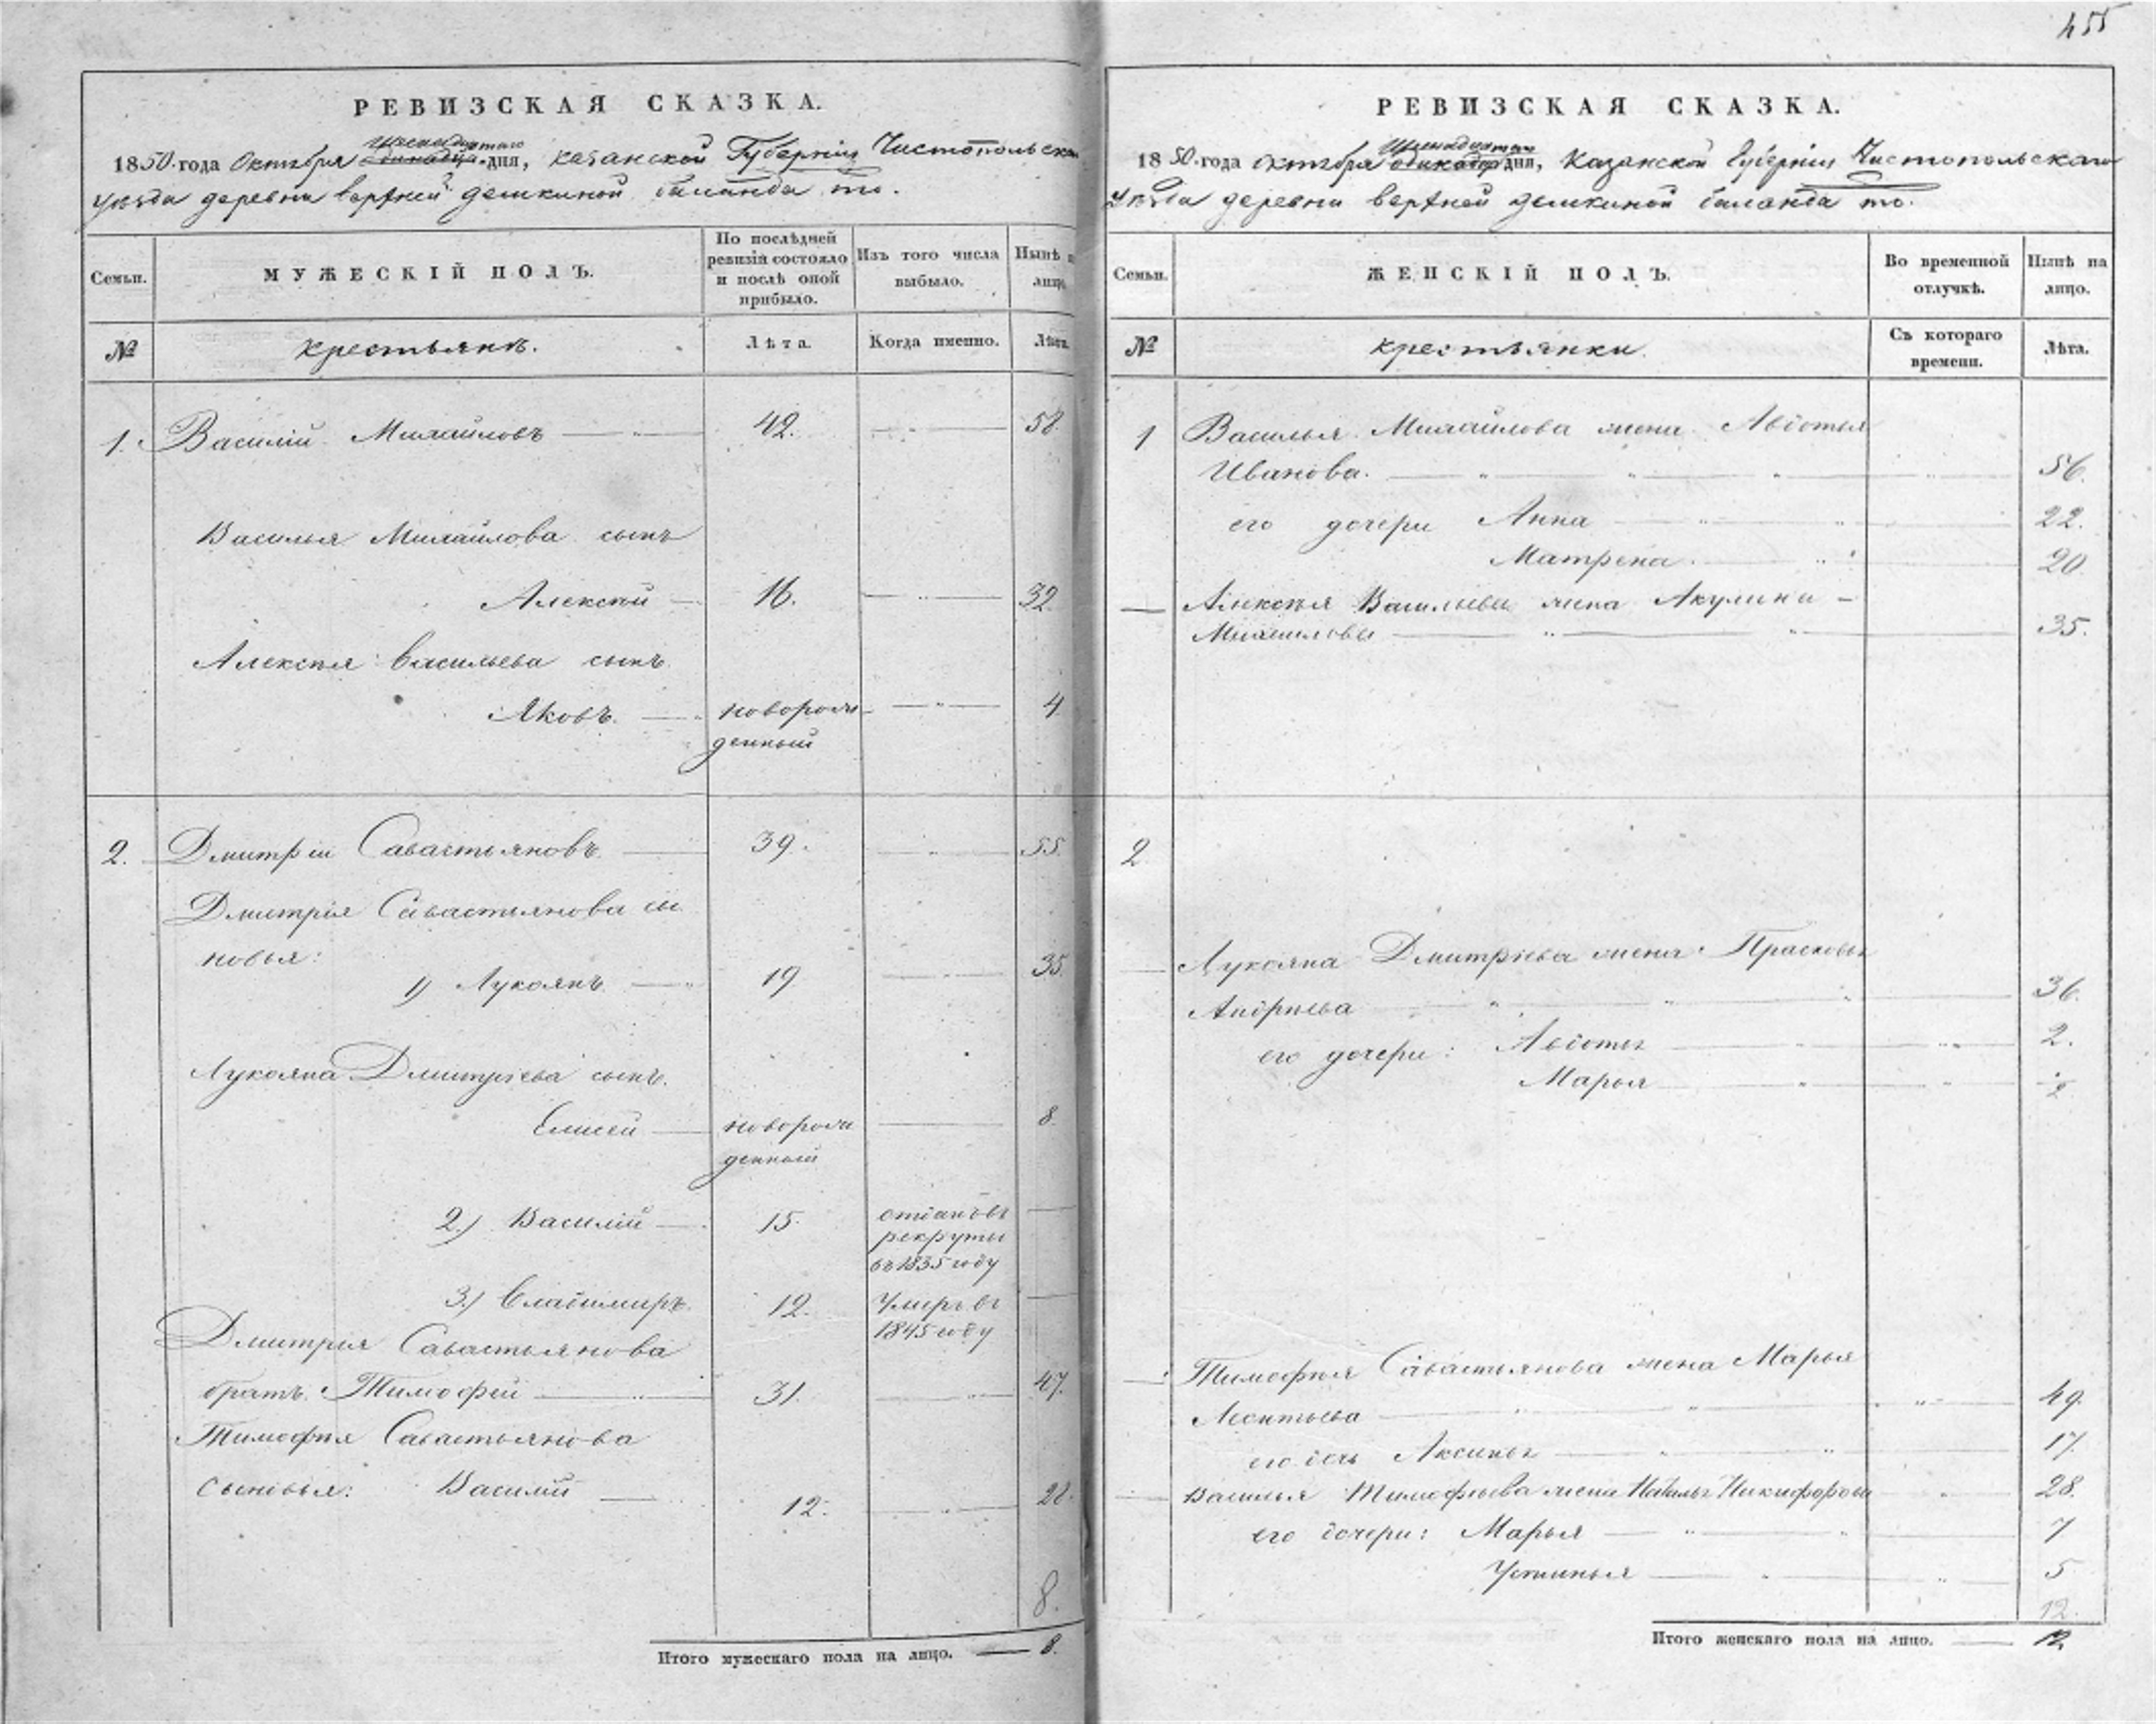 455
РЕВИЗСКАЯ СКАЗКА.
1850 года Октября шестнадцатаго дня, Казанской Губерніи Чистопольска
уѣзда деревни верхней
Семьи.
МУЖЕСКІЙ ПОЛЪ.
По послѣдней ревизіи состояло и послѣ оной прибыло.
Изъ того числа выбыло.
Нынѣ н лицо
№
крестьянъ.
Лѣта.
Когда именно.
Лѣта.
1. Василій Михайловъ — 42. — 58.
Василья Михайлова сынъ
Алексѣй — 16. — 32.
Алексѣя Васильева сынъ
Яковъ. — новорож — 4
денный
2. Дмитрій Савастьяновъ — 39. — 55.
Дмитрія Савастьянова сы
новья:
1) Лукоянъ — 19 — 35.
Лукояна Дмитріева сынъ.
Елисей — новорож — 8
денный
2.) Василій — 15. отданъ въ —
рекруты
въ 1835 году
3.) Владимиръ. 12. Умеръ въ —
1845 году
Дмитрія Савастьянова
братъ. Тимофей — 31. — 47.
Тимофѣя Савастьянова
сыновья: Василій — 12. — 28.
8.
Итого мужескаго пола на лицо. — 8.
РЕВИЗСКАЯ СКАЗКА.
1850 года октября шестнадцатаго дня, Казанской Губерніи Чистопольскаго
уѣзда деревни верхней
Семьи.
ЖЕНСКІЙ ПОЛЪ.
Во временной отлучкѣ.
Нынѣ на лицо.
№
крестьянки.
Съ котораго времени.
Лѣта.
1 Василья Михайлова жена Авдотья
Иванова. — 56.
его дочери Анна — 22.
Матрена. — 20
— Алексѣя Васильева жена Акулина —
Михайлова — 35.
2
— Лукояна Дмитріева жена Прасковья
Андріева — 36.
его дочери: Авдотья — 2.
Марья — ½
— Тимофѣя Савастьянова жена Марья
Леонтьева — 49.
его дочь Аксинья — 17.
— Василья Тимофѣева жена Наталья Никифорова 28.
его дочери: Марья — 7
Устинья — 5
12.
Итого женскаго пола на лицо. — 12.